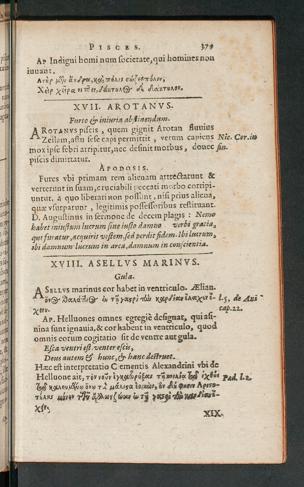 PISCES. 379
AP. Indigni hominum societate, qui homines non
iuuant.
XVII. AROTANVS.
Furto & iniuria abstinendum.
AROTANVS piscis, quem gignit Arotan fluuius
Zeilam, astu sese capi permittit, verum capiens
mox ipse febri arripitur, nec desinit morbus, donec
piscis dimittatur.
Nic. Con. in
fin.
APODOSIS.
Fures vbi primam rem alienam attrectarunt &
verterunt in suam, cruciabili peccati morbo corripi-
untur, a quo liberari non possunt, nisi prius aliena,
quæ vsurparunt, legitimis possessoribus restituant.
D. Augustinus in sermone de decem plagis: Nemo
habet iniustum lucrum sine iusto damno verbi gratia,
qui furatur, acquirit vestem, sed perdit fidem. Ibi lucrum,
ibi damnum lucrum in arca, damnum in conscientia.
XVIII. ASELLVS MARINVS.
Gula.
ASELLVS marinus cor habet in ventriculo. Ælian.
l. 5. de Ani
cap. 22.
AP. Helluones omnes egregiè designat, qui asi-
nina sunt ignauia, & cor habent in ventriculo, quod
omnis eorum cogitatio sit de ventre aut gula.
Esca ventri est, venter escis,
Deus autem & hunc, & hanc destruet.
Hæc est interpretatio Clementis Alexandrini vbi de
Helluone ait,
Pæd. l. 2.
XIX.